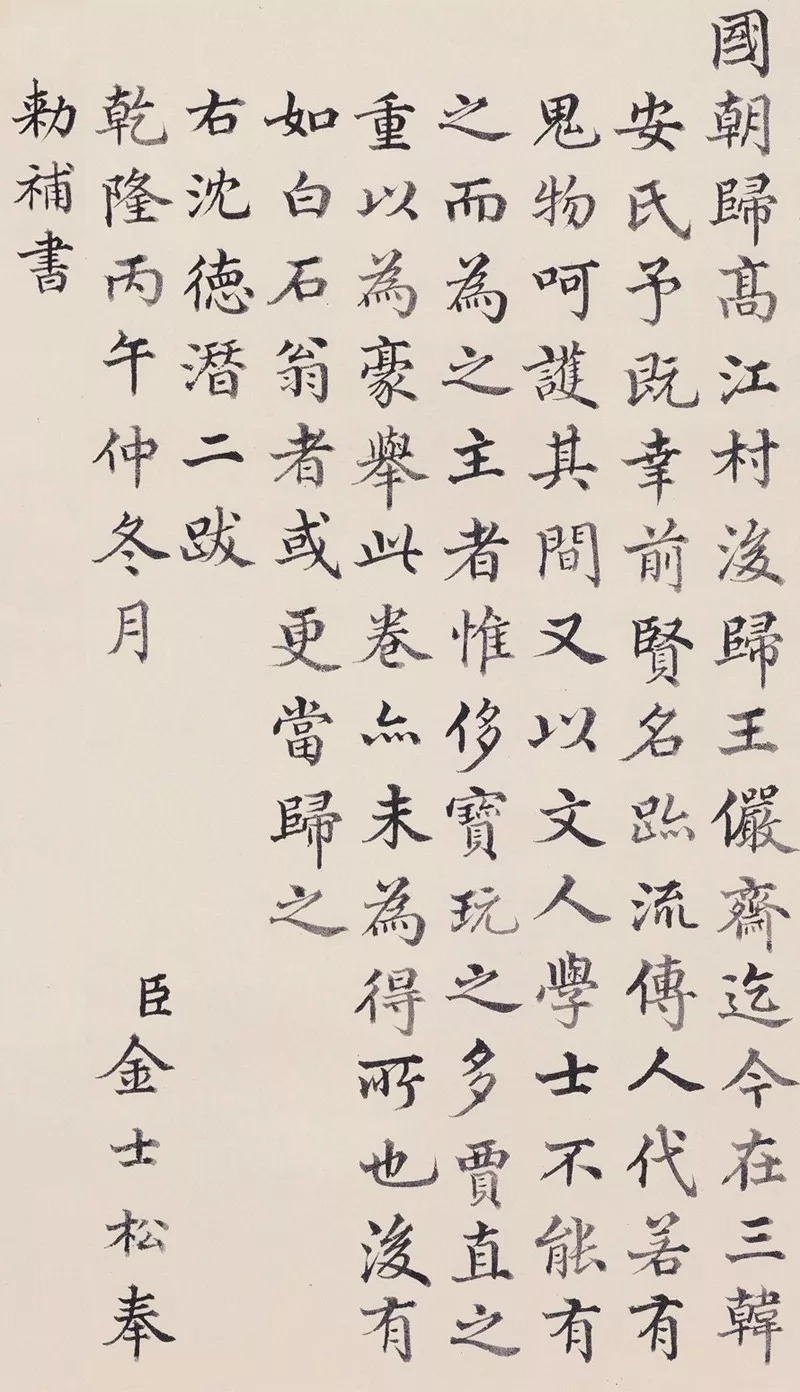 國朝歸髙江村後歸王儼齋迄今在三韓
安氏予既幸前賢名跡流傳人代若有
鬼物呵護其間又以文人學士不能有
之而為之主者惟侈寶玩之多賈直之
重以為豪舉此卷亦未為得所也後有
如白石翁者或更當歸之
右沈德潛二跋
乾隆丙午仲冬月 臣金士松奉
敕補書